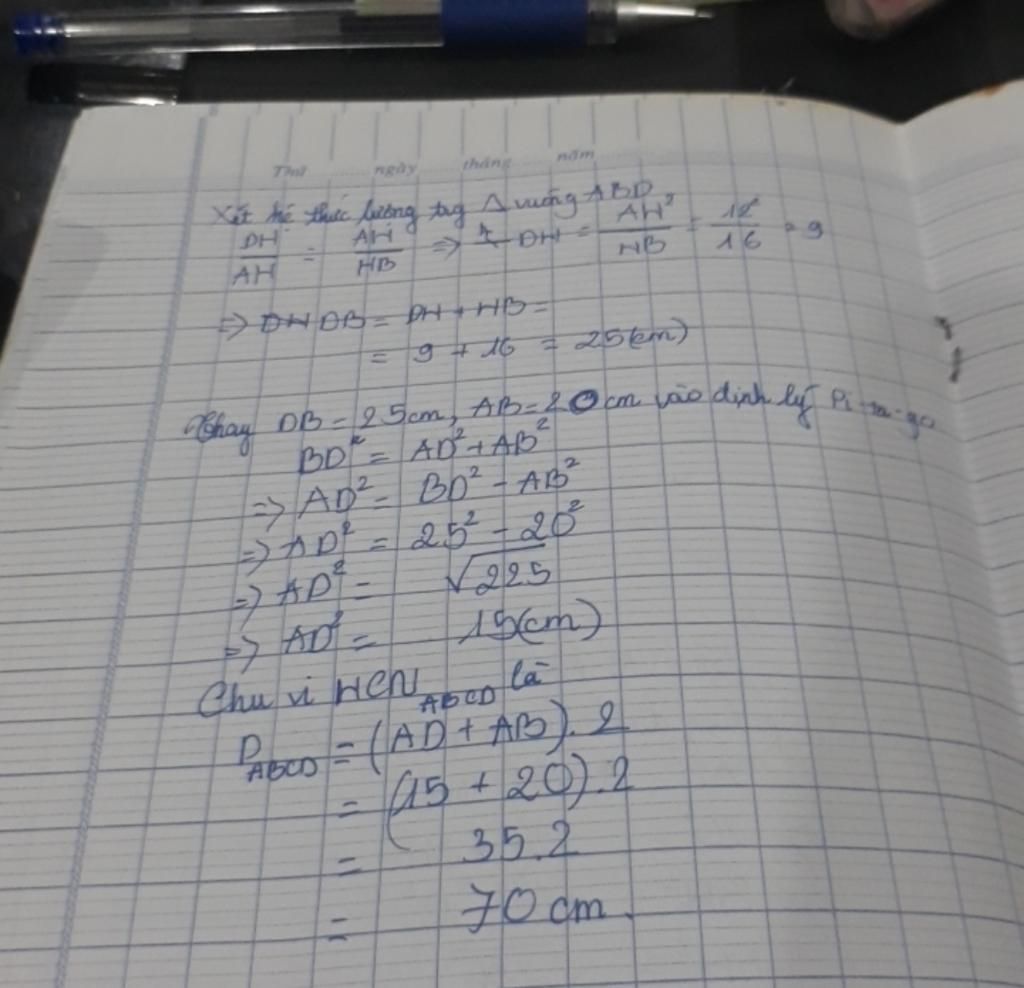 Thứ ngày tháng năm
Xét hệ thức lượng tag Δ vuông ABD
DH/AH = AH/HB => DH = AH²/HB = 12²/16 = 9
=> DB = DH + HB =
= 9 + 16 = 25(cm)
Thay DB = 25cm, AB = 20cm vào định lý Pi-ta-go
BD² = AD² + AB²
=> AD² = BD² - AB²
=> AD² = 25² - 20²
=> AD² = √225
=> AD² = 15(cm)
Chu vi HCN ABCD là
P ABCD = (AD + AB). 2
= (15 + 20). 2
= 35.2
= 70 cm.